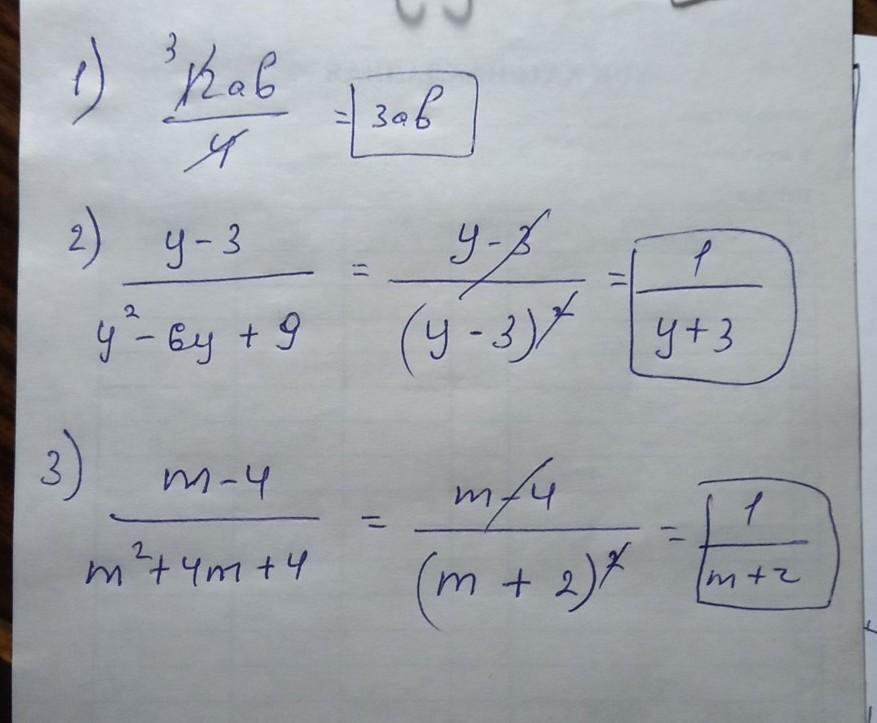 1) ³12ab/4 = 3ab
2) y-3/y²-6y+9 = y-3/(y-3)² = 1/y+3
3) m-4/m²+4m+4 = m-4/(m+2)² = 1/m+2